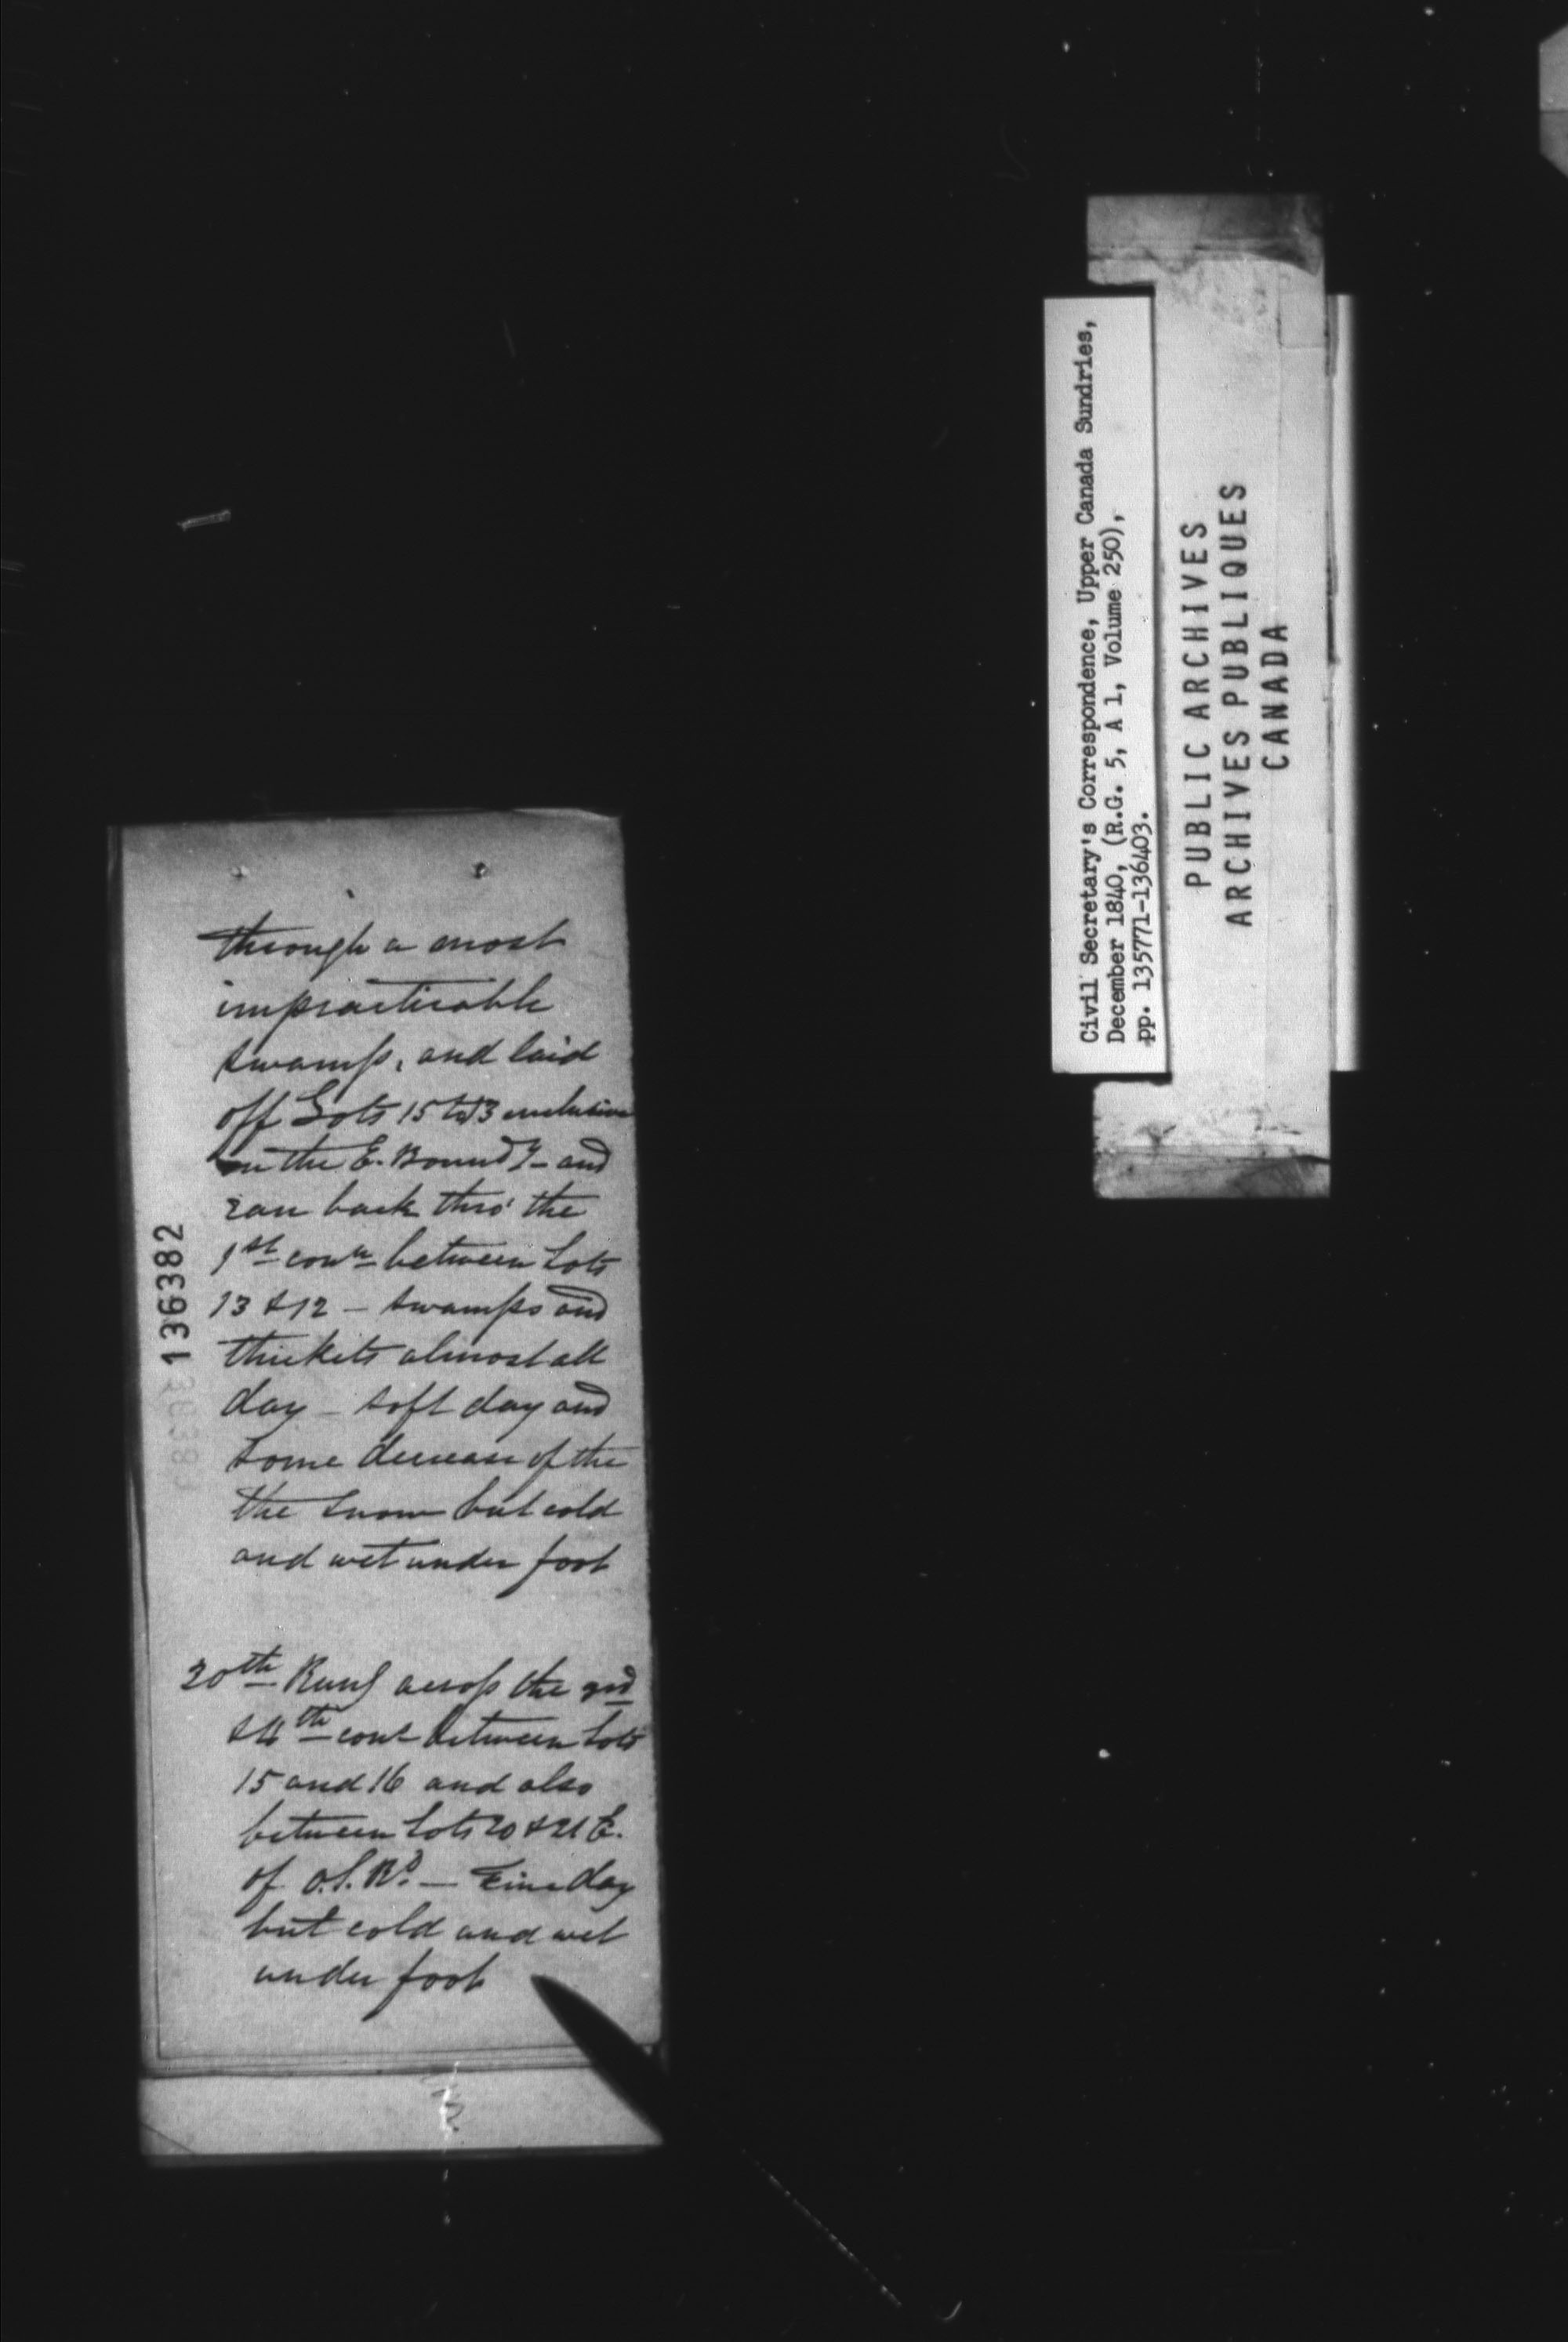 through a most
impracticable
swamp, and laid
off Lots 15 to 13 inclusive
on the E. Boundy- and
ran back thro' the
1st conn between Lots
13 & 12 - swamps and
thickets almost all
day - soft day and
some decrease of the
the snow but cold
and wet under foot
30th Rung across the 3rd
& 4th cons between Lots
15 and 16 and also
between Lots 20 & 21 E.
of O.S. Rd. - Fine day
but cold and wet
under foot
136382
Civil Secretary's Correspondence, Upper Canada Sundries,
December 1840, (R.G. 5, A 1, Volume 250),
pp. 135771-136403.
PUBLIC ARCHIVES
ARCHIVES PUBLIQUES
CANADA